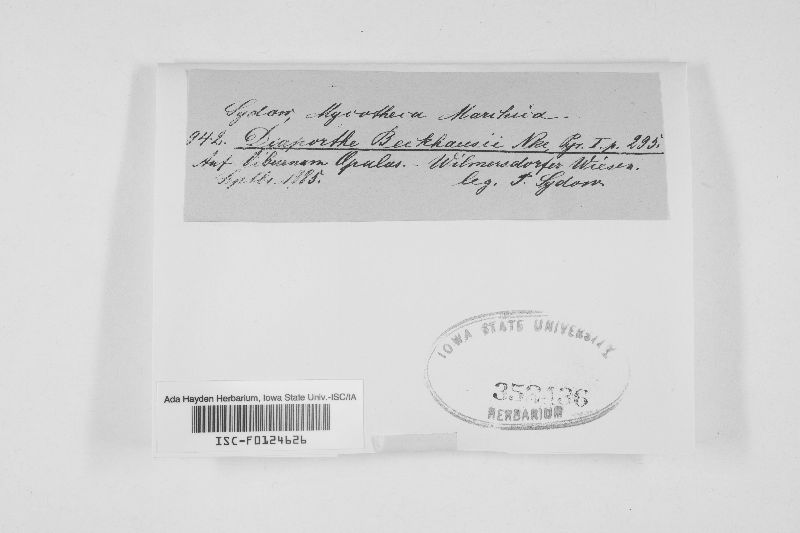 Sydow, Mycotheca Marchica.
942. Diaporthe Beckhausii Nke, Pyr. I. p. 295.
Auf Viburnum Opulus. - Wilmersdorfer Wiesen.
Septbr. 1885. leg. P. Sydow.
IOWA STATE UNIVERSITY
HERBARIUM
Ada Hayden Herbarium, Iowa State Univ.-ISC/IA
ISC-F0124626